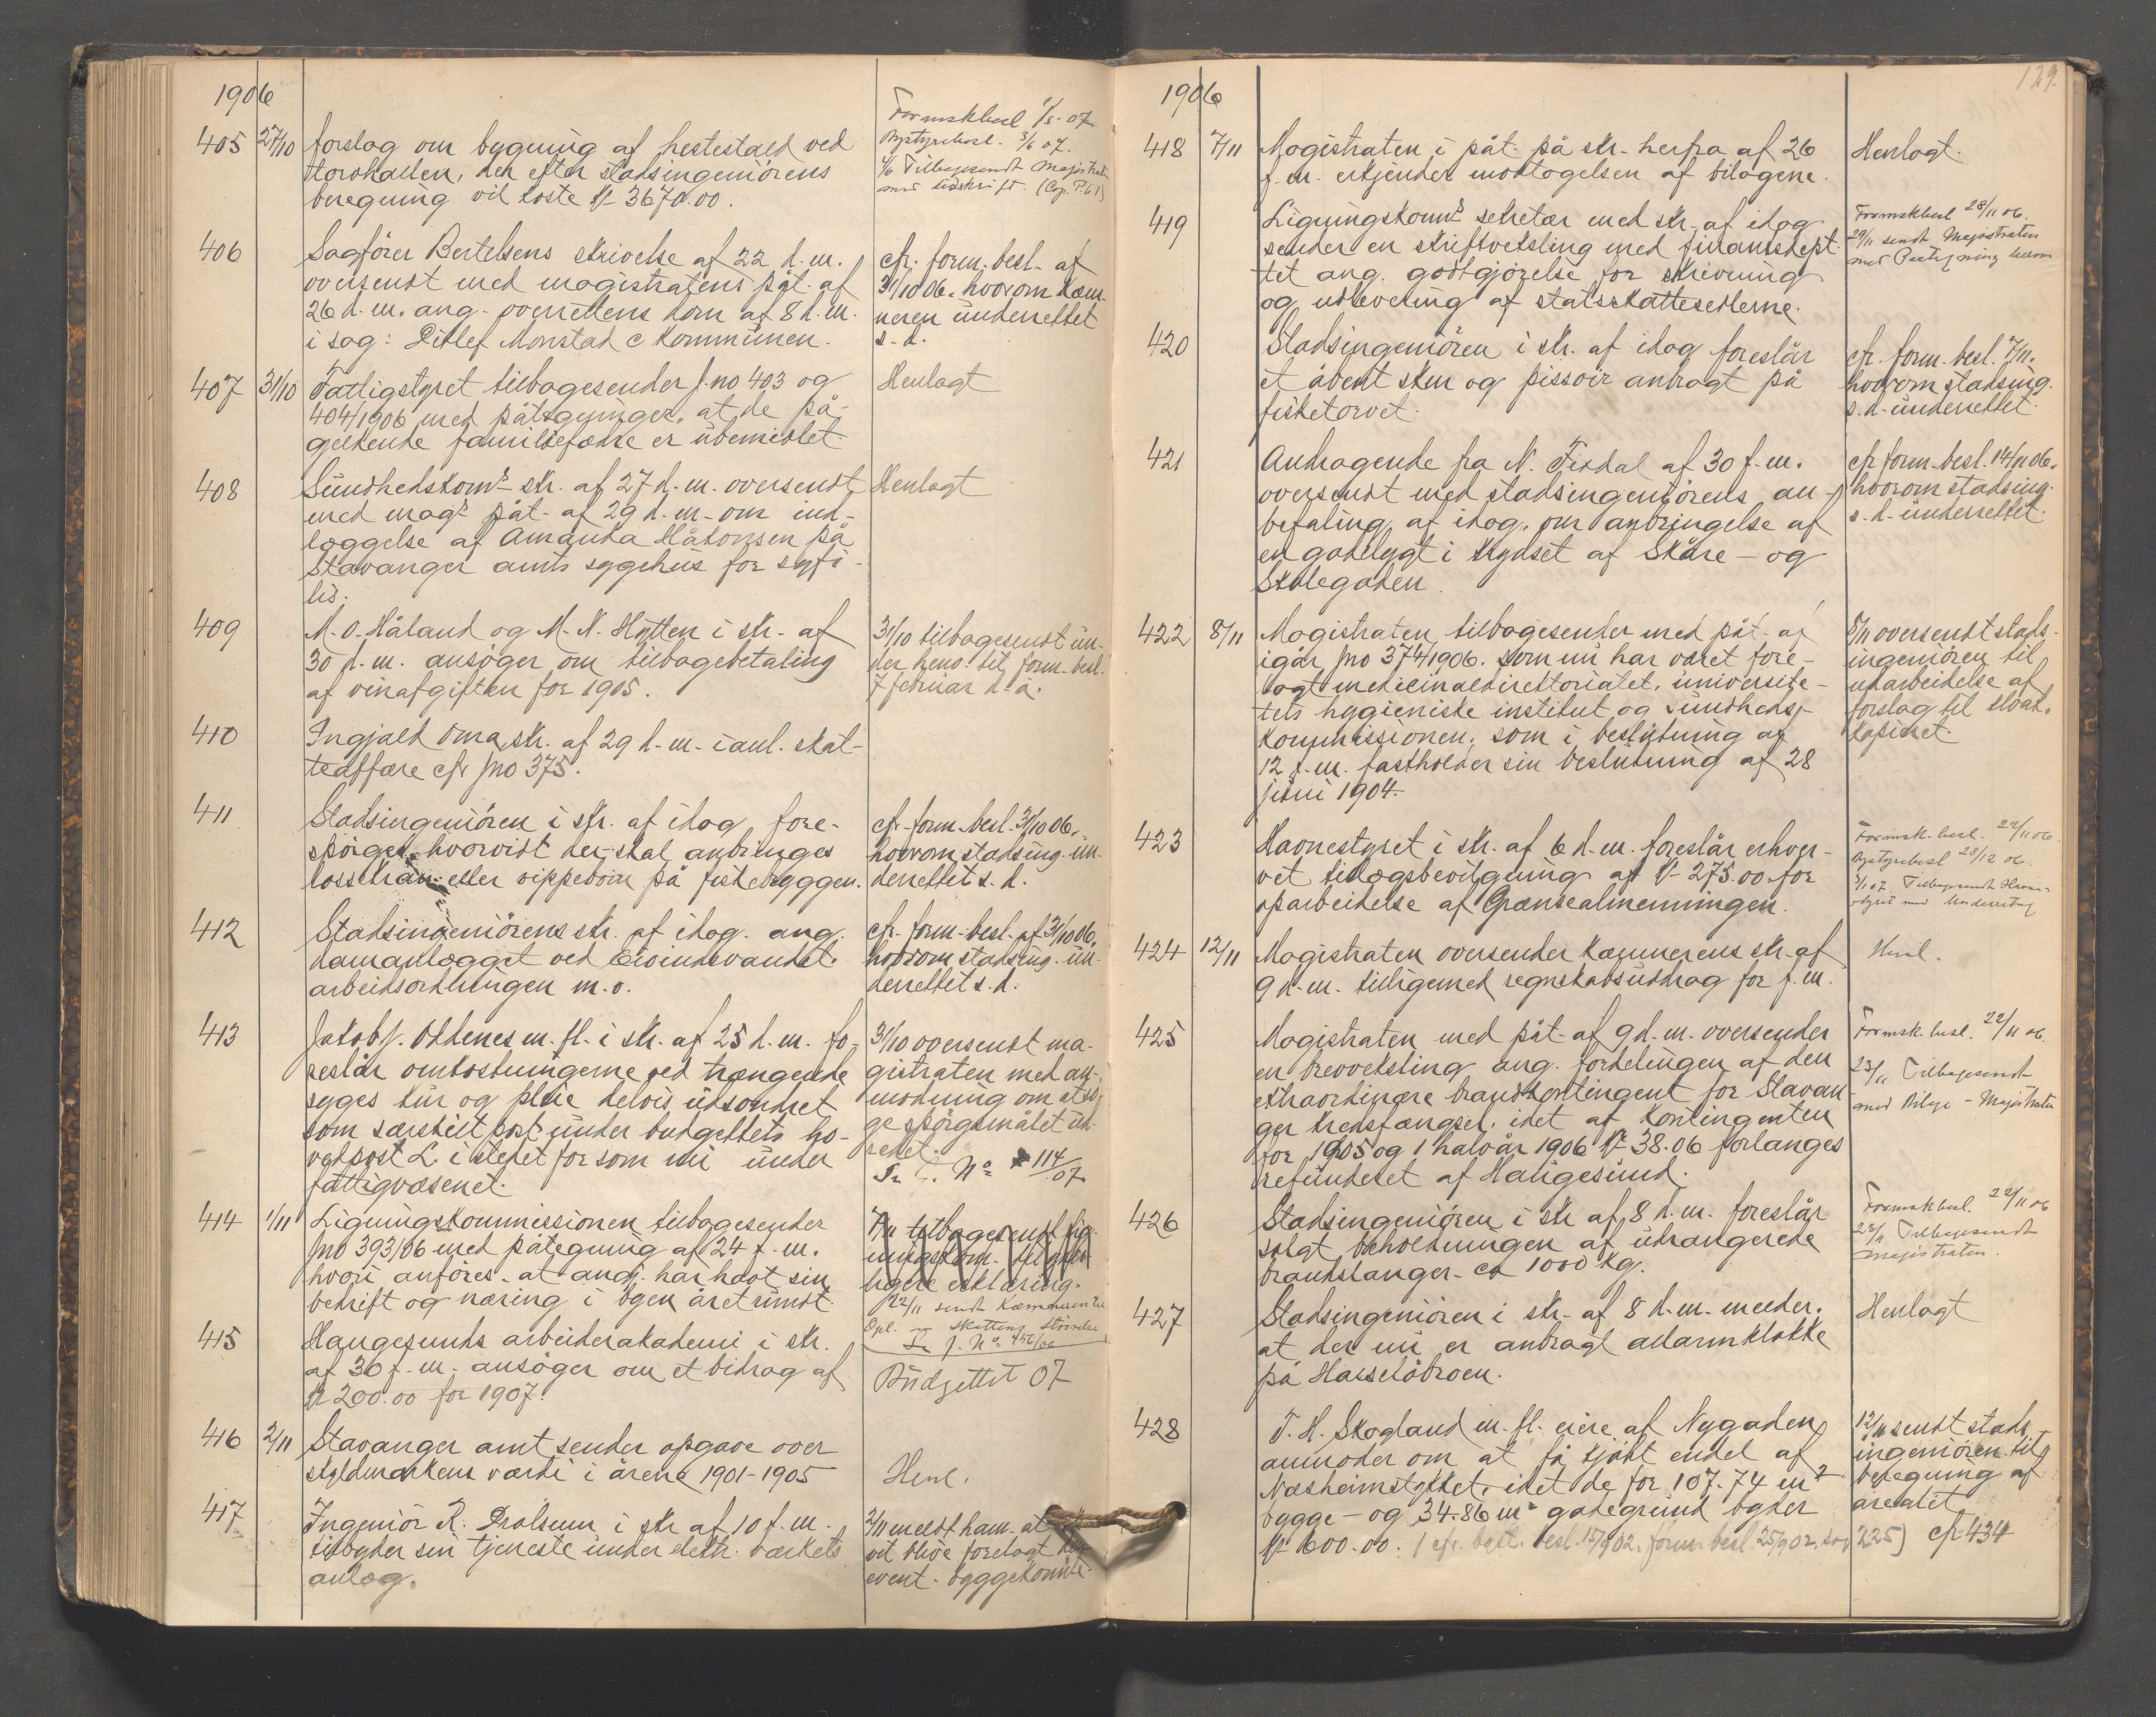 1906
405 27/10 forslag om bygning af hestestald ved
Torvhallen, der efter stadsingeniörens
beregning vil koste Kr 3670.00.
Formskbesl 1/5-07
Bystyrebesl. 3/6 07.
4/6 Tilbagesendt Magistrat
med Udskrift. (Cop. P. 61)
406 Sagförer Bertelsens skrivelse af 22 d.m.
oversendt med magistratens påt. af
26 d.m. ang. overrettens dom af 8 d.m.
i sag: Ditlef Monstad c Kommunen.
cfr. form. besl. af
31/10 06. hvorom kæm-
neren underrettet
s.d.
407 31/10 Fattigstyret tilbagesender j.no 403 og
404/1906 med påtegninger, at de på-
gjeldende familiefædre er ubemidlet.
Henlagt
408 Sundhedskoms skr. af 27 d.m. oversendt
med mags påt. af 29 d.m. om ind-
læggelse af Amanda Håkonsen på
Stavanger amts sygehus for syfi-
lis.
Henlagt
409 M.O. Håland og M.N. Hytten i skr. af
30 d.m. ansöger om tilbagebetaling
af vinafgiften for 1905.
31/10 tilbagesendt un-
der henv. til form. besl.
7 februar d.å.
410 Ingjald Öma, skr. af 29 d.m. i anl. skat-
teaffære cfr jno 375.
411 Stadsingeniören i skr. af idag fore-
spörger, hvorvidt der skal anbringes
lossekran eller vippebom på fiskebryggen.
cfr. form. besl. 31/10 06.
hvorom stadsing. un-
derrettet s.d.
412 Stadsingeniörens skr. af idag. ang.
damanlægget ved Eivindsvandet.
arbeidsordningen m.v.
cfr. form. besl. af 31/10 06,
hvorom stadsing. un-
derrettet s.d.
413 Jakob J. Oldenes m.fl. i skr. af 25 d.m. fo-
reslår omkostningerne ved trængende
syges kur og pleie delvis udsondret
som særskilt post under budgettets ho-
vedpost L. i stedet for som nu under
fattigvæsenet.
31/10 oversendt ma-
gistraten med an-
modning om at få
ge spörgsmålet ud-
redet.
Se J. No 114/07
414 1/11 Ligningskommissionen tilbagesender
jno 393/06 med påtegning af 24 f.m.
hvori anföres at andr. har havt sin
bedrift og næring i byen året rundt.
7/11 tilbagesendt lig-
ningskom. til yder-
ligere erklæring.
22/11 sendt Kæmneren til
Opl. om Skattens Störrelse
Se J. No 456/06
415 Haugesunds arbeiderakademi i skr.
af 30 f.m. ansöger om et bidrag af
Kr 200.00 for 1907.
Budgettet 07
416 2/11 Stavanger amt sender opgave over
skyldmarkens værdi i årene 1901-1905
Henl.
417 Ingeniör R. Drolsum i skr af 10 f.m.
tilbyder sin tjeneste under elektr. værkets
anlæg.
2/11 meldt ham at
vil blive forelagt den
event. byggekomité.
129.
1906
418 7/11 Magistraten i påt. på skr. herfra af 26
f.m. erkjender modtagelsen af bilagene.
Henlagt.
419 Ligningskoms sekretær med skr. af idag
sender en skriftveksling med finansdept.
tet ang. godtgjörelse for skrivning
og udlevering af statsskattesedlerne.
Formskbesl 28/11 06.
29/11 sendt Magistraten
med Paategning herom
420 Stadsingeniören i skr. af idag foreslår
et åbent skur og pissoir anbragt på
fisketorvet.
cfr. form. besl. 7/11.
hvorom stadsing.
s.d. underrettet.
421 Andragende fra N. Tixdal af 30 f.m.
oversendt med stadsingeniörens an-
befaling af idag. om anbringelse af
en gadelygt i krydset af Skåre- og
Skolegaden.
cfr form. besl. 14/11 06.
hvorom stadsing.
s.d. underrettet.
422 8/11 Magistraten tilbagesender med påt. af
igår jno 374/1906. som nu har været fore-
lagt medicinaldirektoriatet, universite-
tets hygieniske institut og sundheds-
kommissionen, som i beslutning af
12 f.m. fastholder sin beslutning af 28
juni 1904.
8/11 oversendt stads-
ingeniören til
udarbeidelse af
forslag til kloak.
kapinet.
423 Havnestyret i skr. af 6 d.m. foreslår erhver-
vet tillægsbevilgning af Kr 275.00 for
oparbeidelse af Grænsealmenningen.
Formsk. besl. 22/11 06
Bystyrebesl 28/12 06.
3/1 07. Tilbagesendt Havne-
styret med Underretning
424 12/11 Magistraten oversender kæmnerens skr. af
9 d.m. tilligemed regnskabsuddrag for f.m.
Henl.
425 Magistraten med påt. af 9 d.m. oversender
en brevveksling ang. fordelingen af den
extraordinære brandkontingent for Stavan-
ger kredsfængsel, idet af kontingenten
for 1905 og 1 halvår 1906 Kr 38.06 forlanges
refunderet af Haugesund.
Formsk. besl. 22/11 06.
23/11 Tilbagesendt
med Bilage - Magistraten
426 Stadsingeniören i skr af 8 d.m. foreslår
solgt beholdningen af udrangerede
brandslanger - ca 1000 kg.
Formskbesl. 22/11 06
23/11 Tilbagesendt
Magistraten.
427 Stadsingeniören i skr. af 8 d.m. melder.
at der nu er anbragt allarmklokke
på Hasselöbroen.
Henlagt
428 T.H. Skogland m.fl. eiere af Nygaden,
anmoder om at få kjöbt endel af
Næsheimstykket, idet de for 107.74 m2
bygge- og 34.86 m2 gadegrund byder
Kr 600.00. (cfr. byst. besl. 15/9 02. form. besl. 25/9 02, sag 225) cfr 434
12/11 sendt stads
ingeniören til
beregning af
arealet.